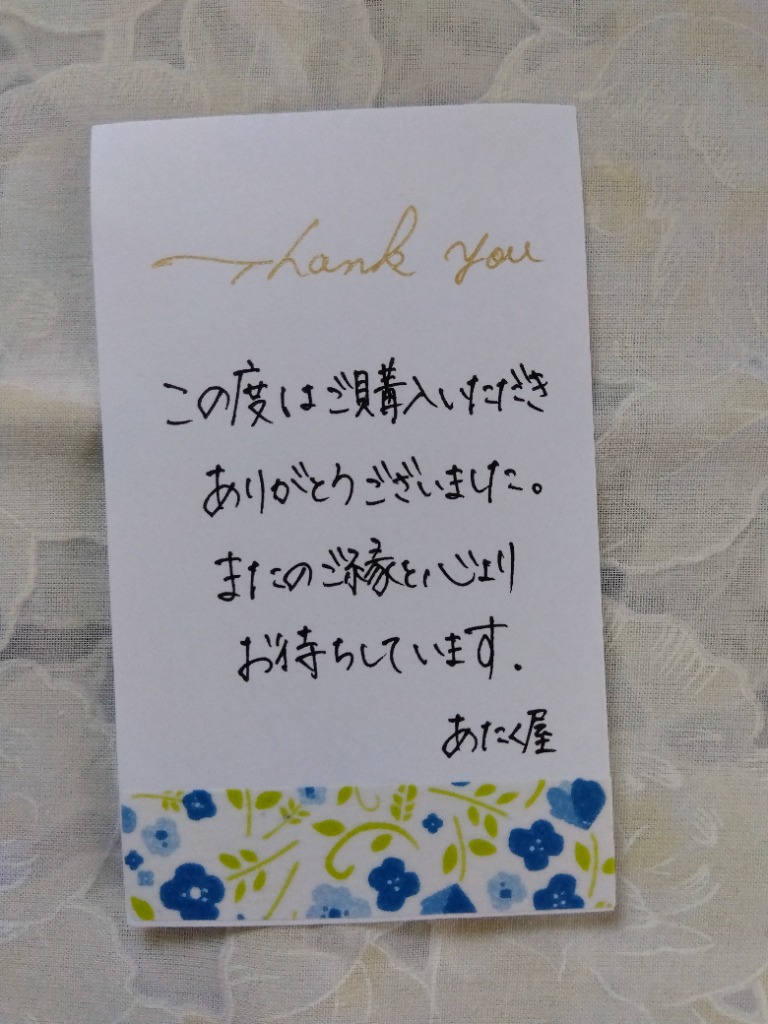 Thank you
この度はご購入いただき
ありがとうございました。
またのご縁を心より
お待ちしています.
あたく屋